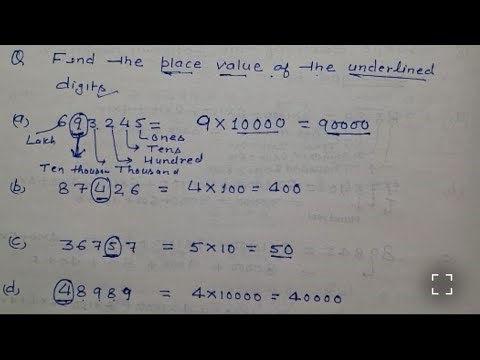 Q Find the place value of the underlined
digits.
(a) 693245 = 9×10000 = 90000
Lakh Ones
Tens
Hundred
Ten thousan Thousand
(b) 87426 = 4×100 = 400
(c) 36757 = 5×10 = 50
(d) 48989 = 4×10000 = 40000